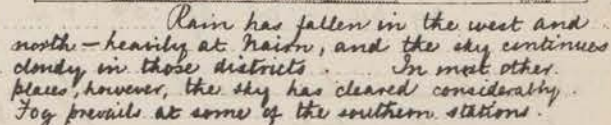 Rain has fallen in the west and
north - heavily at Nairn, and the sky continues
cloudy in those districts. In most other
places, however, the sky has cleared considerably.
Fog prevails at some of the southern stations.